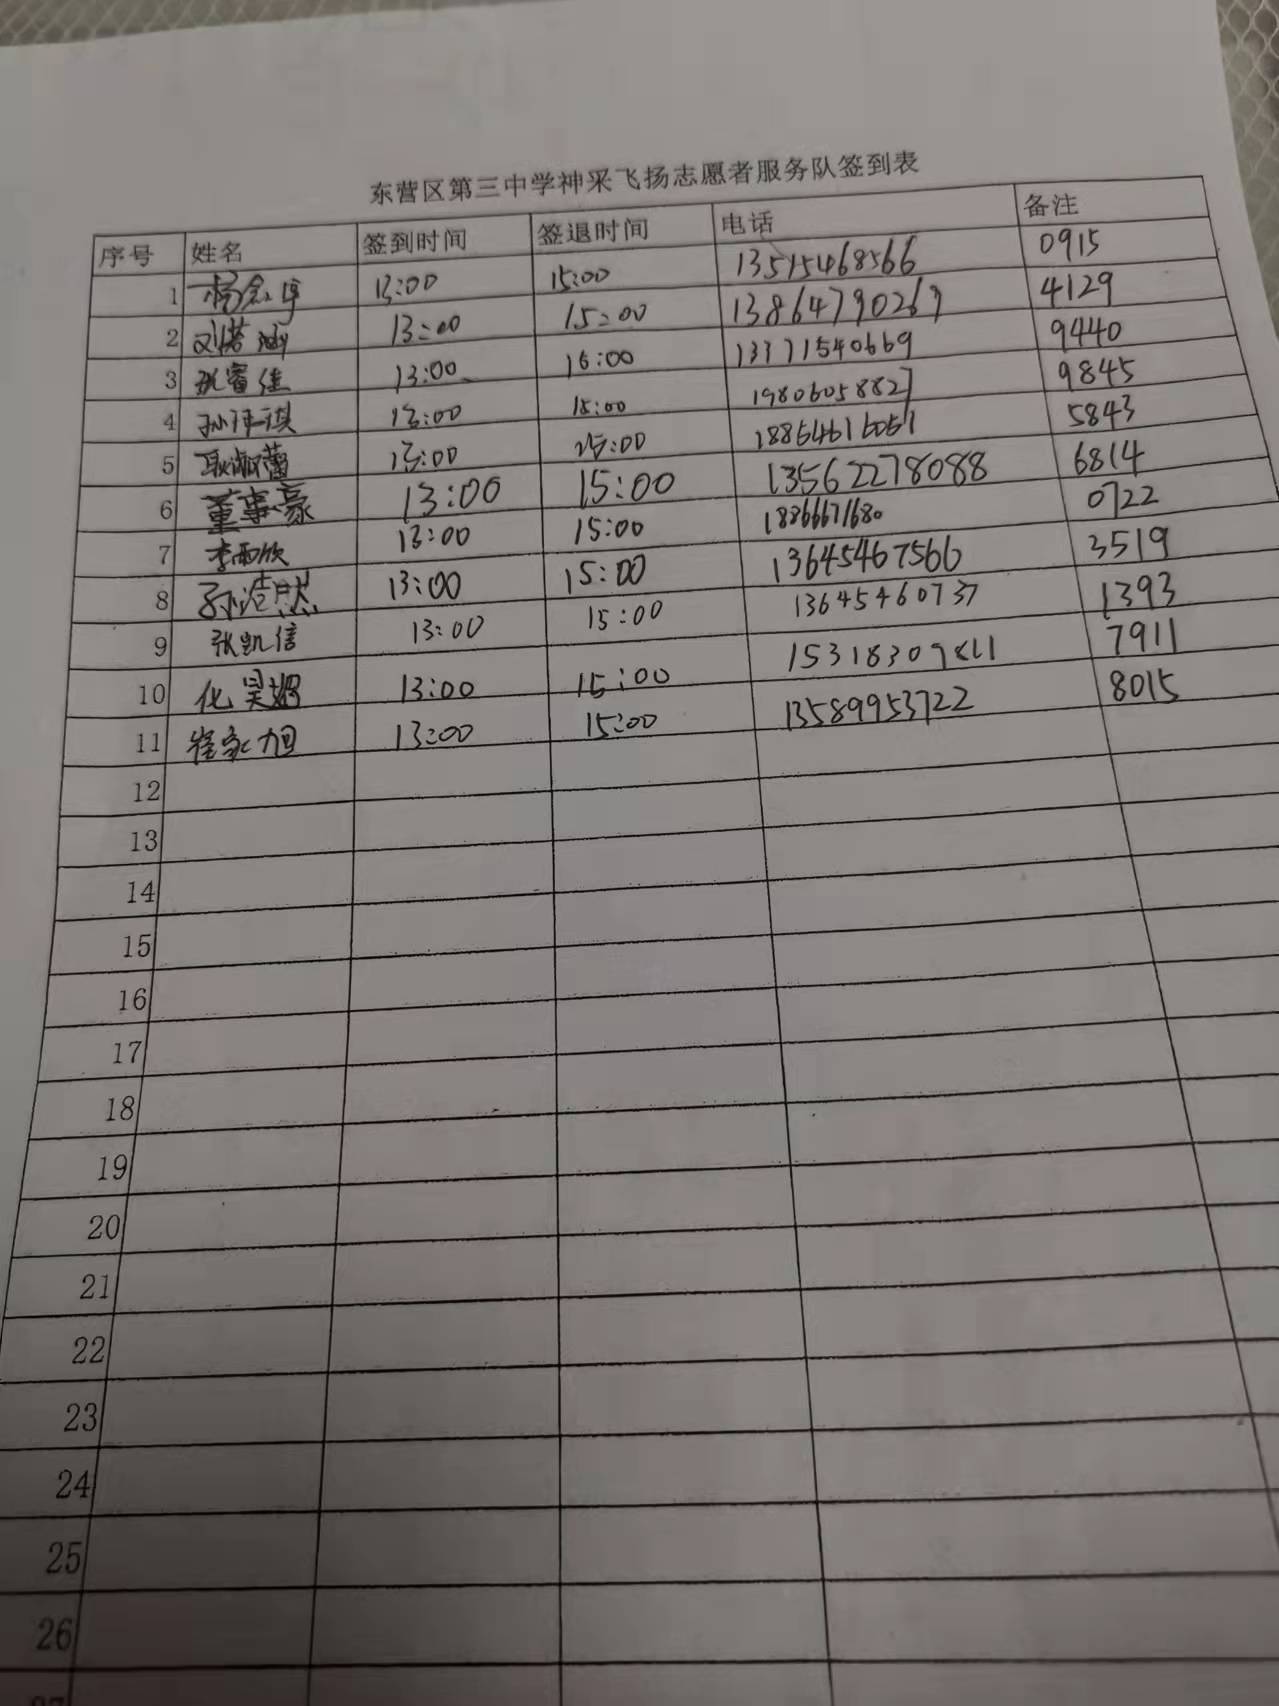 东营区第三中学神采飞扬志愿者服务队签到表
序号 姓名 签到时间 签退时间 电话 备注
1 13:00 15:00 13515468566 0915
2 刘若涵 13:00 15:00 13864790267 4129
3 张睿佳 13:00 15:00 13371540669 9440
4 13:00 15:00 19806058827 9845
5 耿淑蕾 13:00 15:00 18854616051 5843
6 董事豪 13:00 15:00 13562278088 6814
7 李雨欣 13:00 15:00 18866671680 0722
8 孙浩然 13:00 15:00 13645467566 3519
9 张凯信 13:00 15:00 13645460737 1393
10 化昊娟 13:00 15:00 15318309811 7911
11 崔家旭 13:00 15:00 13589953722 8015
12
13
14
15
16
17
18
19
20
21
22
23
24
25
26